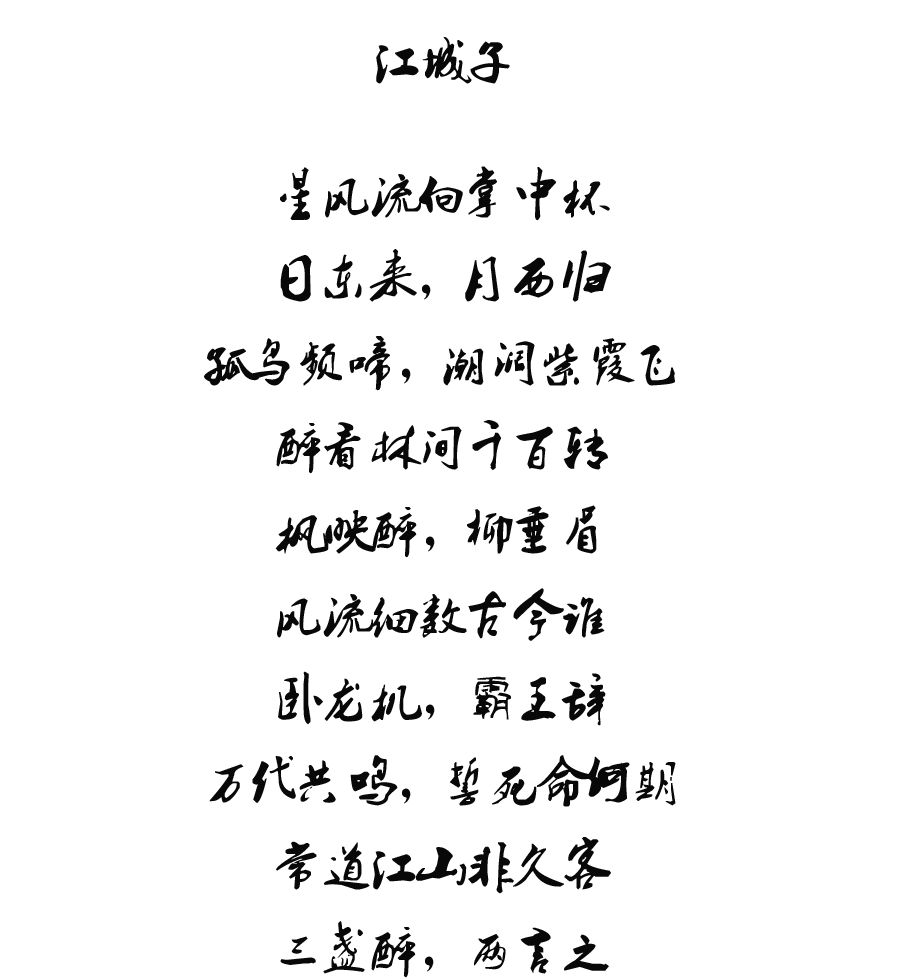 江城子
星风流向掌中杯
日东来，月西归
孤鸟频啼，潮涧紫霞飞
醉看林间千百转
枫映醉，柳垂眉
风流细数古今谁
卧龙机，霸王辞
万代共鸣，誓死命何期
常道江山非久客
三盏醉，两言之